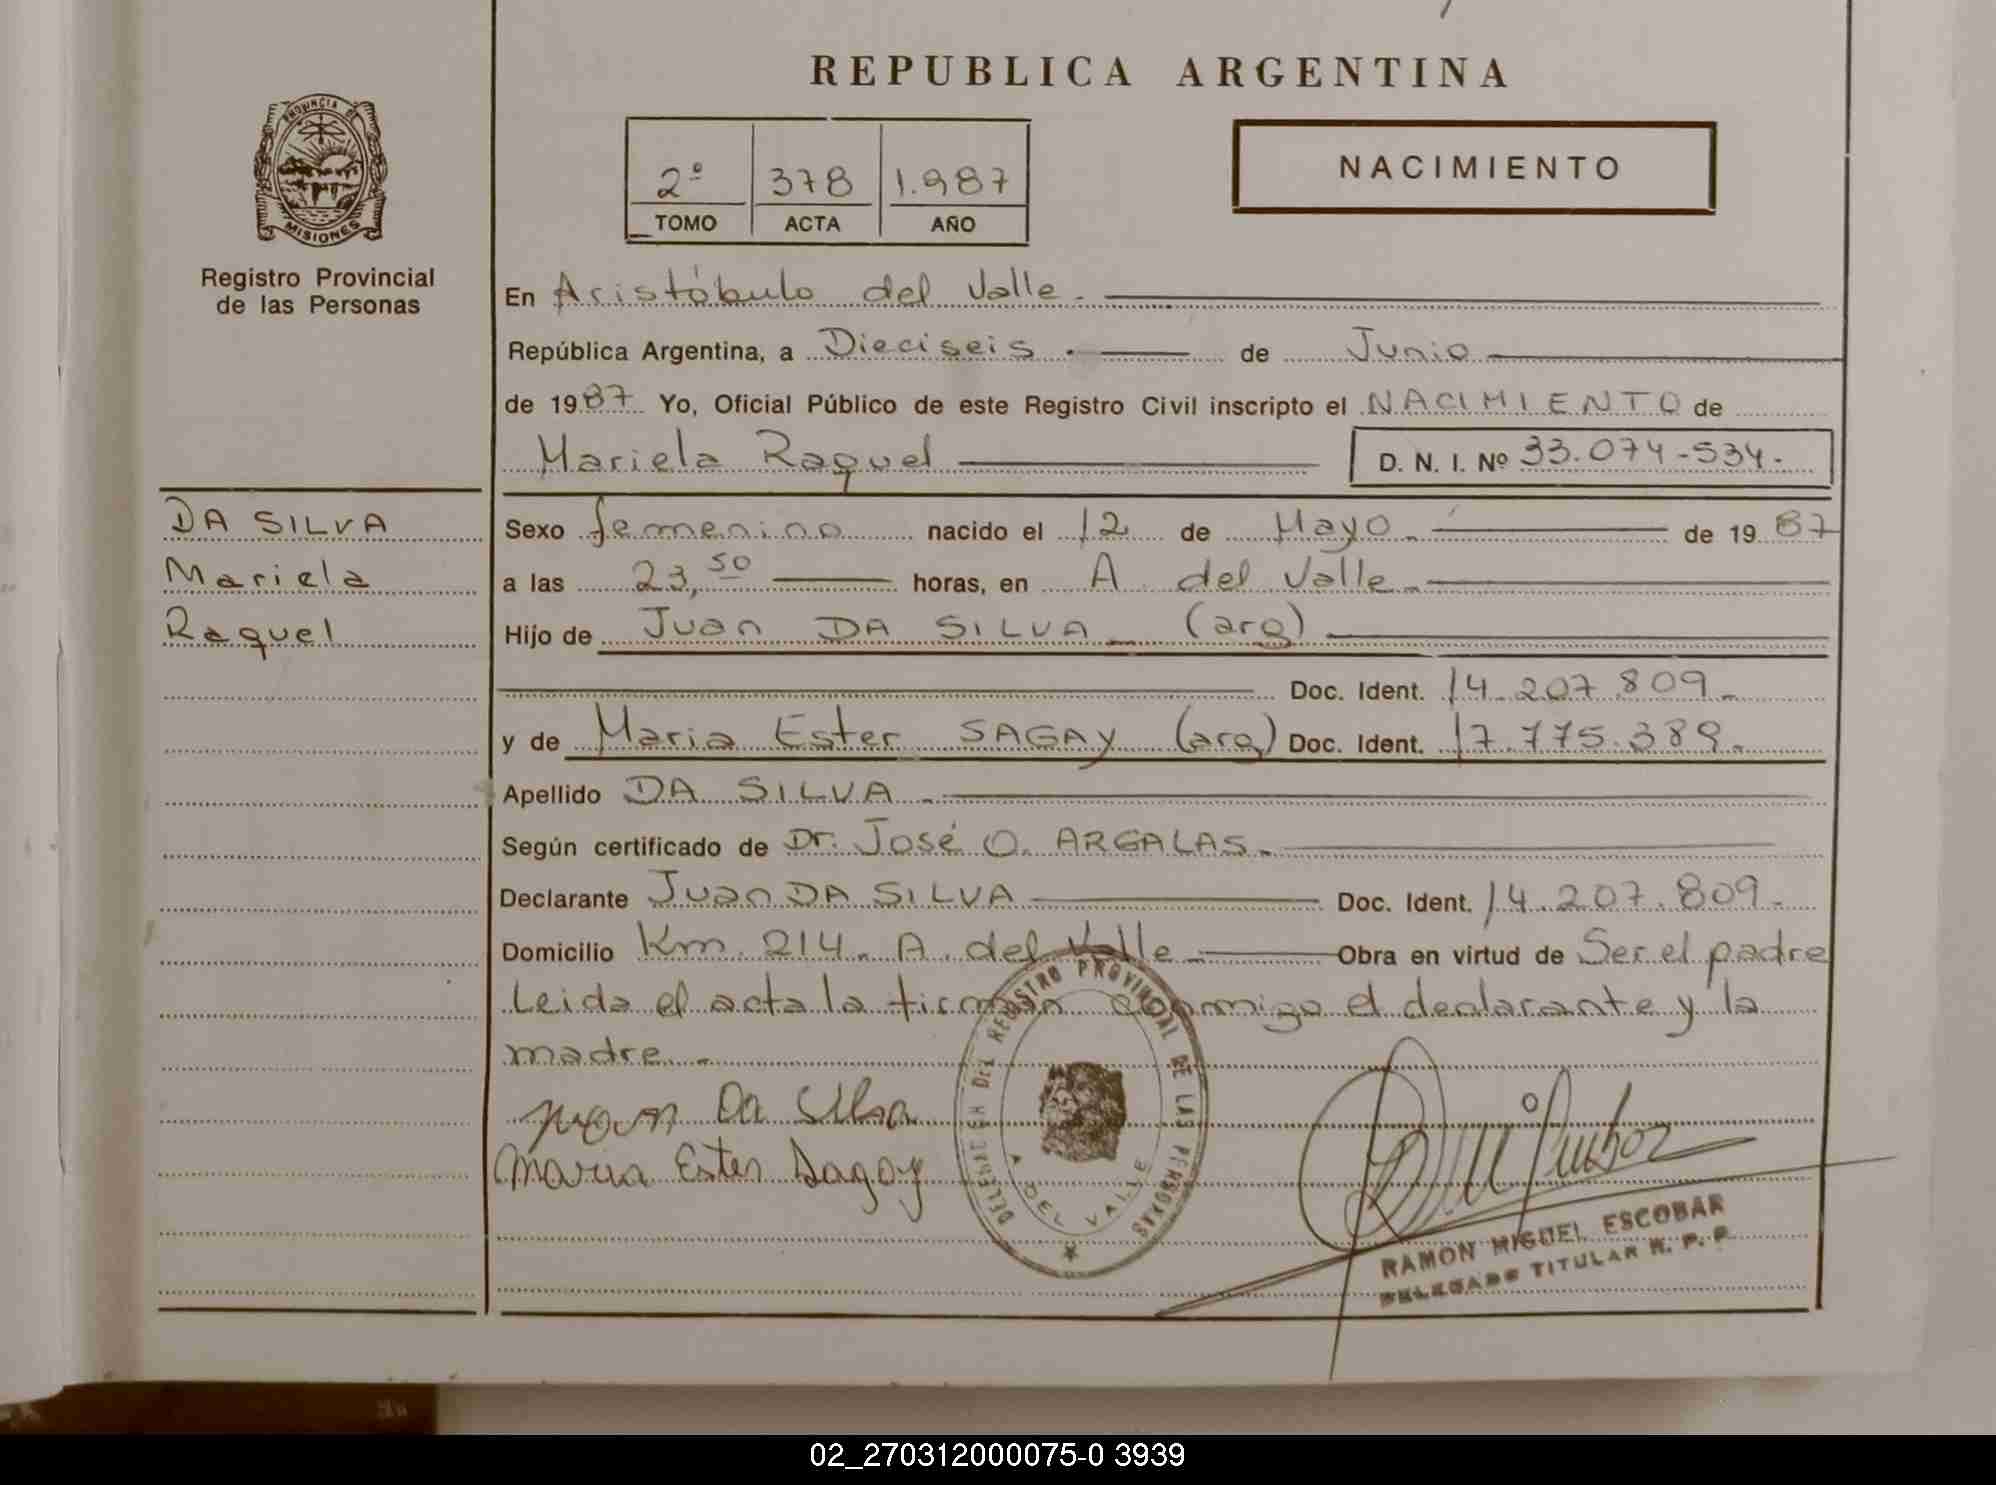 REPUBLICA ARGENTINA
PROVINCIA DE
MISIONES
Registro Provincial
de las Personas
2º 378 1.987
TOMO ACTA AÑO
NACIMIENTO
En Aristóbulo del Valle.
República Argentina, a Dieciseis . de Junio
de 1987 Yo, Oficial Público de este Registro Civil inscripto el NACIMIENTO de
Mariela Raquel D. N. I. Nº 33.074-534.
DA SILVA
Mariela
Raquel
Sexo femenino nacido el 12 de Mayo. de 1987
a las 23,50 horas, en A. del Valle.
Hijo de Juan DA SILVA (arg)
Doc. Ident. 14.207.809.
y de Maria Ester SAGAY (arg) Doc. Ident. 17.775.389.
Apellido DA SILVA.
Según certificado de Dr. José O. ARGALAS.
Declarante Juan DA SILVA Doc. Ident. 14.207.809.
Domicilio Km. 214. A. del Valle. Obra en virtud de Ser el padre
Leida el acta la firman conmigo el declarante y la
madre.
juan Da Silva
Maria Ester Sagay
DELEGACION DEL REGISTRO PROVINCIAL DE LAS PERSONAS
A. DEL VALLE
RAMON MIGUEL ESCOBAR
DELEGADO TITULAR R. P. P.
02_270312000075-0 3939